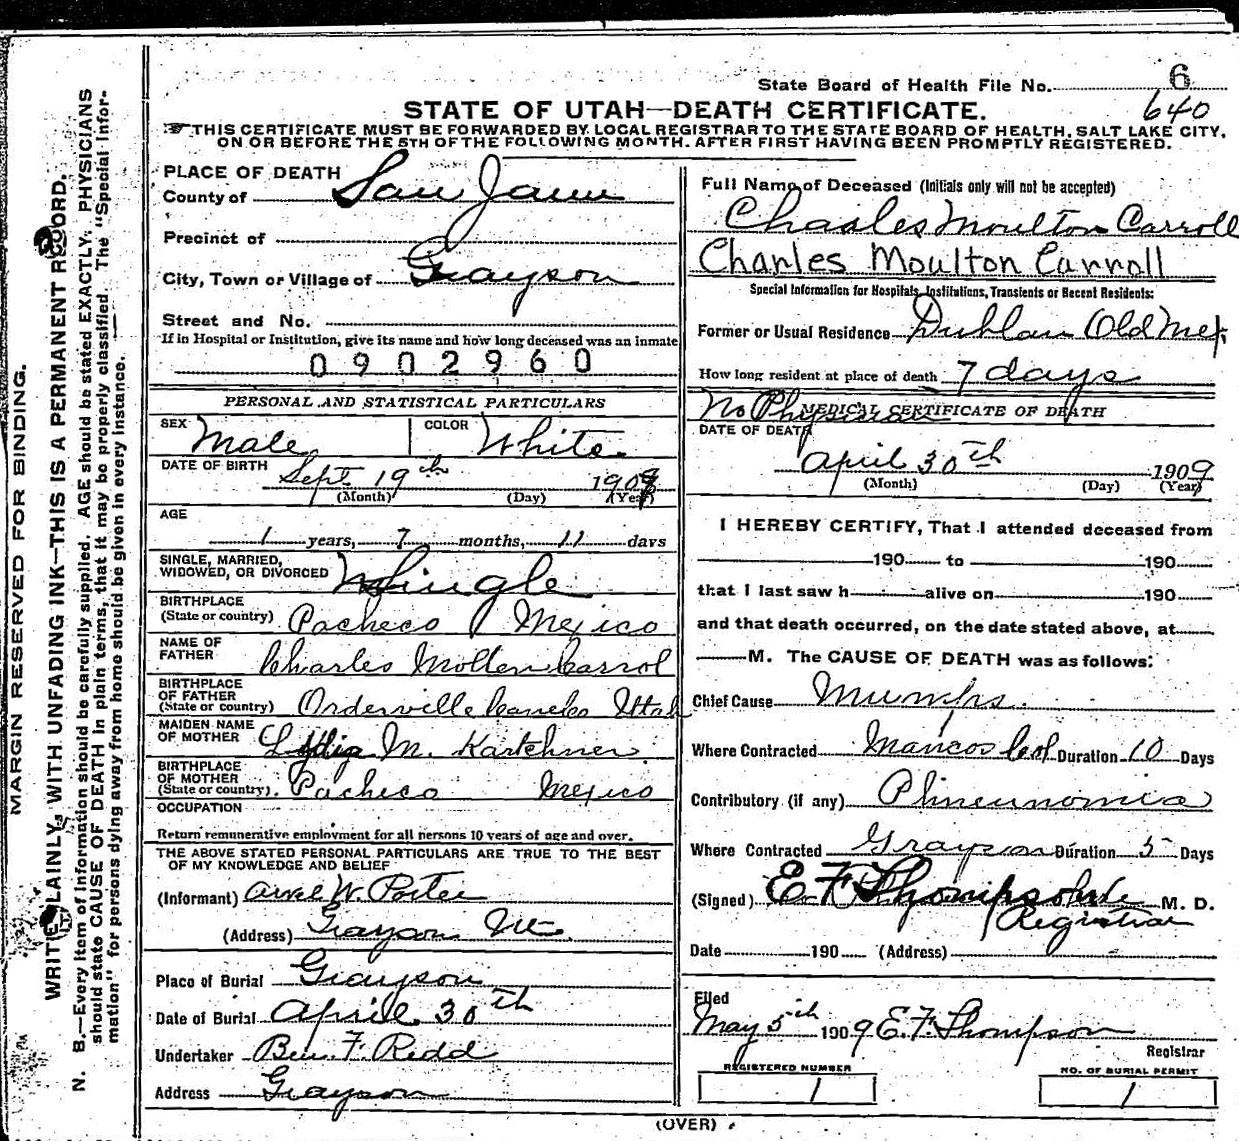 State Board of Health File No. 6
640
STATE OF UTAH—DEATH CERTIFICATE.
THIS CERTIFICATE MUST BE FORWARDED BY LOCAL REGISTRAR TO THE STATE BOARD OF HEALTH, SALT LAKE CITY,
ON OR BEFORE THE 5TH OF THE FOLLOWING MONTH. AFTER FIRST HAVING BEEN PROMPTLY REGISTERED.
MARGIN RESERVED FOR BINDING.
WRITE PLAINLY, WITH UNFADING INK—THIS IS A PERMANENT RECORD.
N. B.—Every item of information should be carefully supplied. AGE should be stated EXACTLY. PHYSICIANS
should state CAUSE OF DEATH in plain terms, that it may be properly classified. The "Special Infor-
mation" for persons dying away from home should be given in every instance.
PLACE OF DEATH
County of San Juan
Precinct of
City, Town or Village of Grayson
Street and No.
If in Hospital or Institution, give its name and how long deceased was an inmate
0902960
PERSONAL AND STATISTICAL PARTICULARS
SEX Male COLOR White
DATE OF BIRTH Sept 19th 190
(Month) (Day) (Year)
AGE
1 years, 7 months, 11 days
SINGLE, MARRIED,
WIDOWED, OR DIVORCED Single
BIRTHPLACE
(State or country) Pacheco Mexico
NAME OF
FATHER Charles Molten Carrol
BIRTHPLACE
OF FATHER
(State or country) Orderville Utah
MAIDEN NAME
OF MOTHER Lydia M. Kartchner
BIRTHPLACE
OF MOTHER
(State or country). Pacheco Mexico
OCCUPATION
Return remunerative employment for all persons 10 years of age and over.
THE ABOVE STATED PERSONAL PARTICULARS ARE TRUE TO THE BEST
OF MY KNOWLEDGE AND BELIEF
(Informant) W. Porter
(Address) Grayson
Place of Burial Grayson
Date of Burial April 30th
Undertaker Ben. F. Redd
Address Grayson
Full Name of Deceased (Initials only will not be accepted)
Chaales Moulton Carroll
Charles Moulton Carroll
Special Information for Hospitals, Institutions, Transients or Recent Residents:
Former or Usual Residence Dublan Old Mex.
How long resident at place of death 7 days
No Physician
MEDICAL CERTIFICATE OF DEATH
DATE OF DEATH
April 30th 1909
(Month) (Day) (Year)
I HEREBY CERTIFY, That I attended deceased from
190 to 190
that I last saw h alive on 190
and that death occurred, on the date stated above, at
M. The CAUSE OF DEATH was as follows:
Chief Cause Mumps.
Where Contracted Mancos Col Duration 10 Days
Contributory (if any) Phneunomia
Where Contracted Grayson Duration 5 Days
(Signed) E F Thompson M. D.
Registrar
Date 190 (Address)
Filed
May 5th 1909 E. F. Thompson
Registrar
REGISTERED NUMBER
1
NO. OF BURIAL PERMIT
1
(OVER)